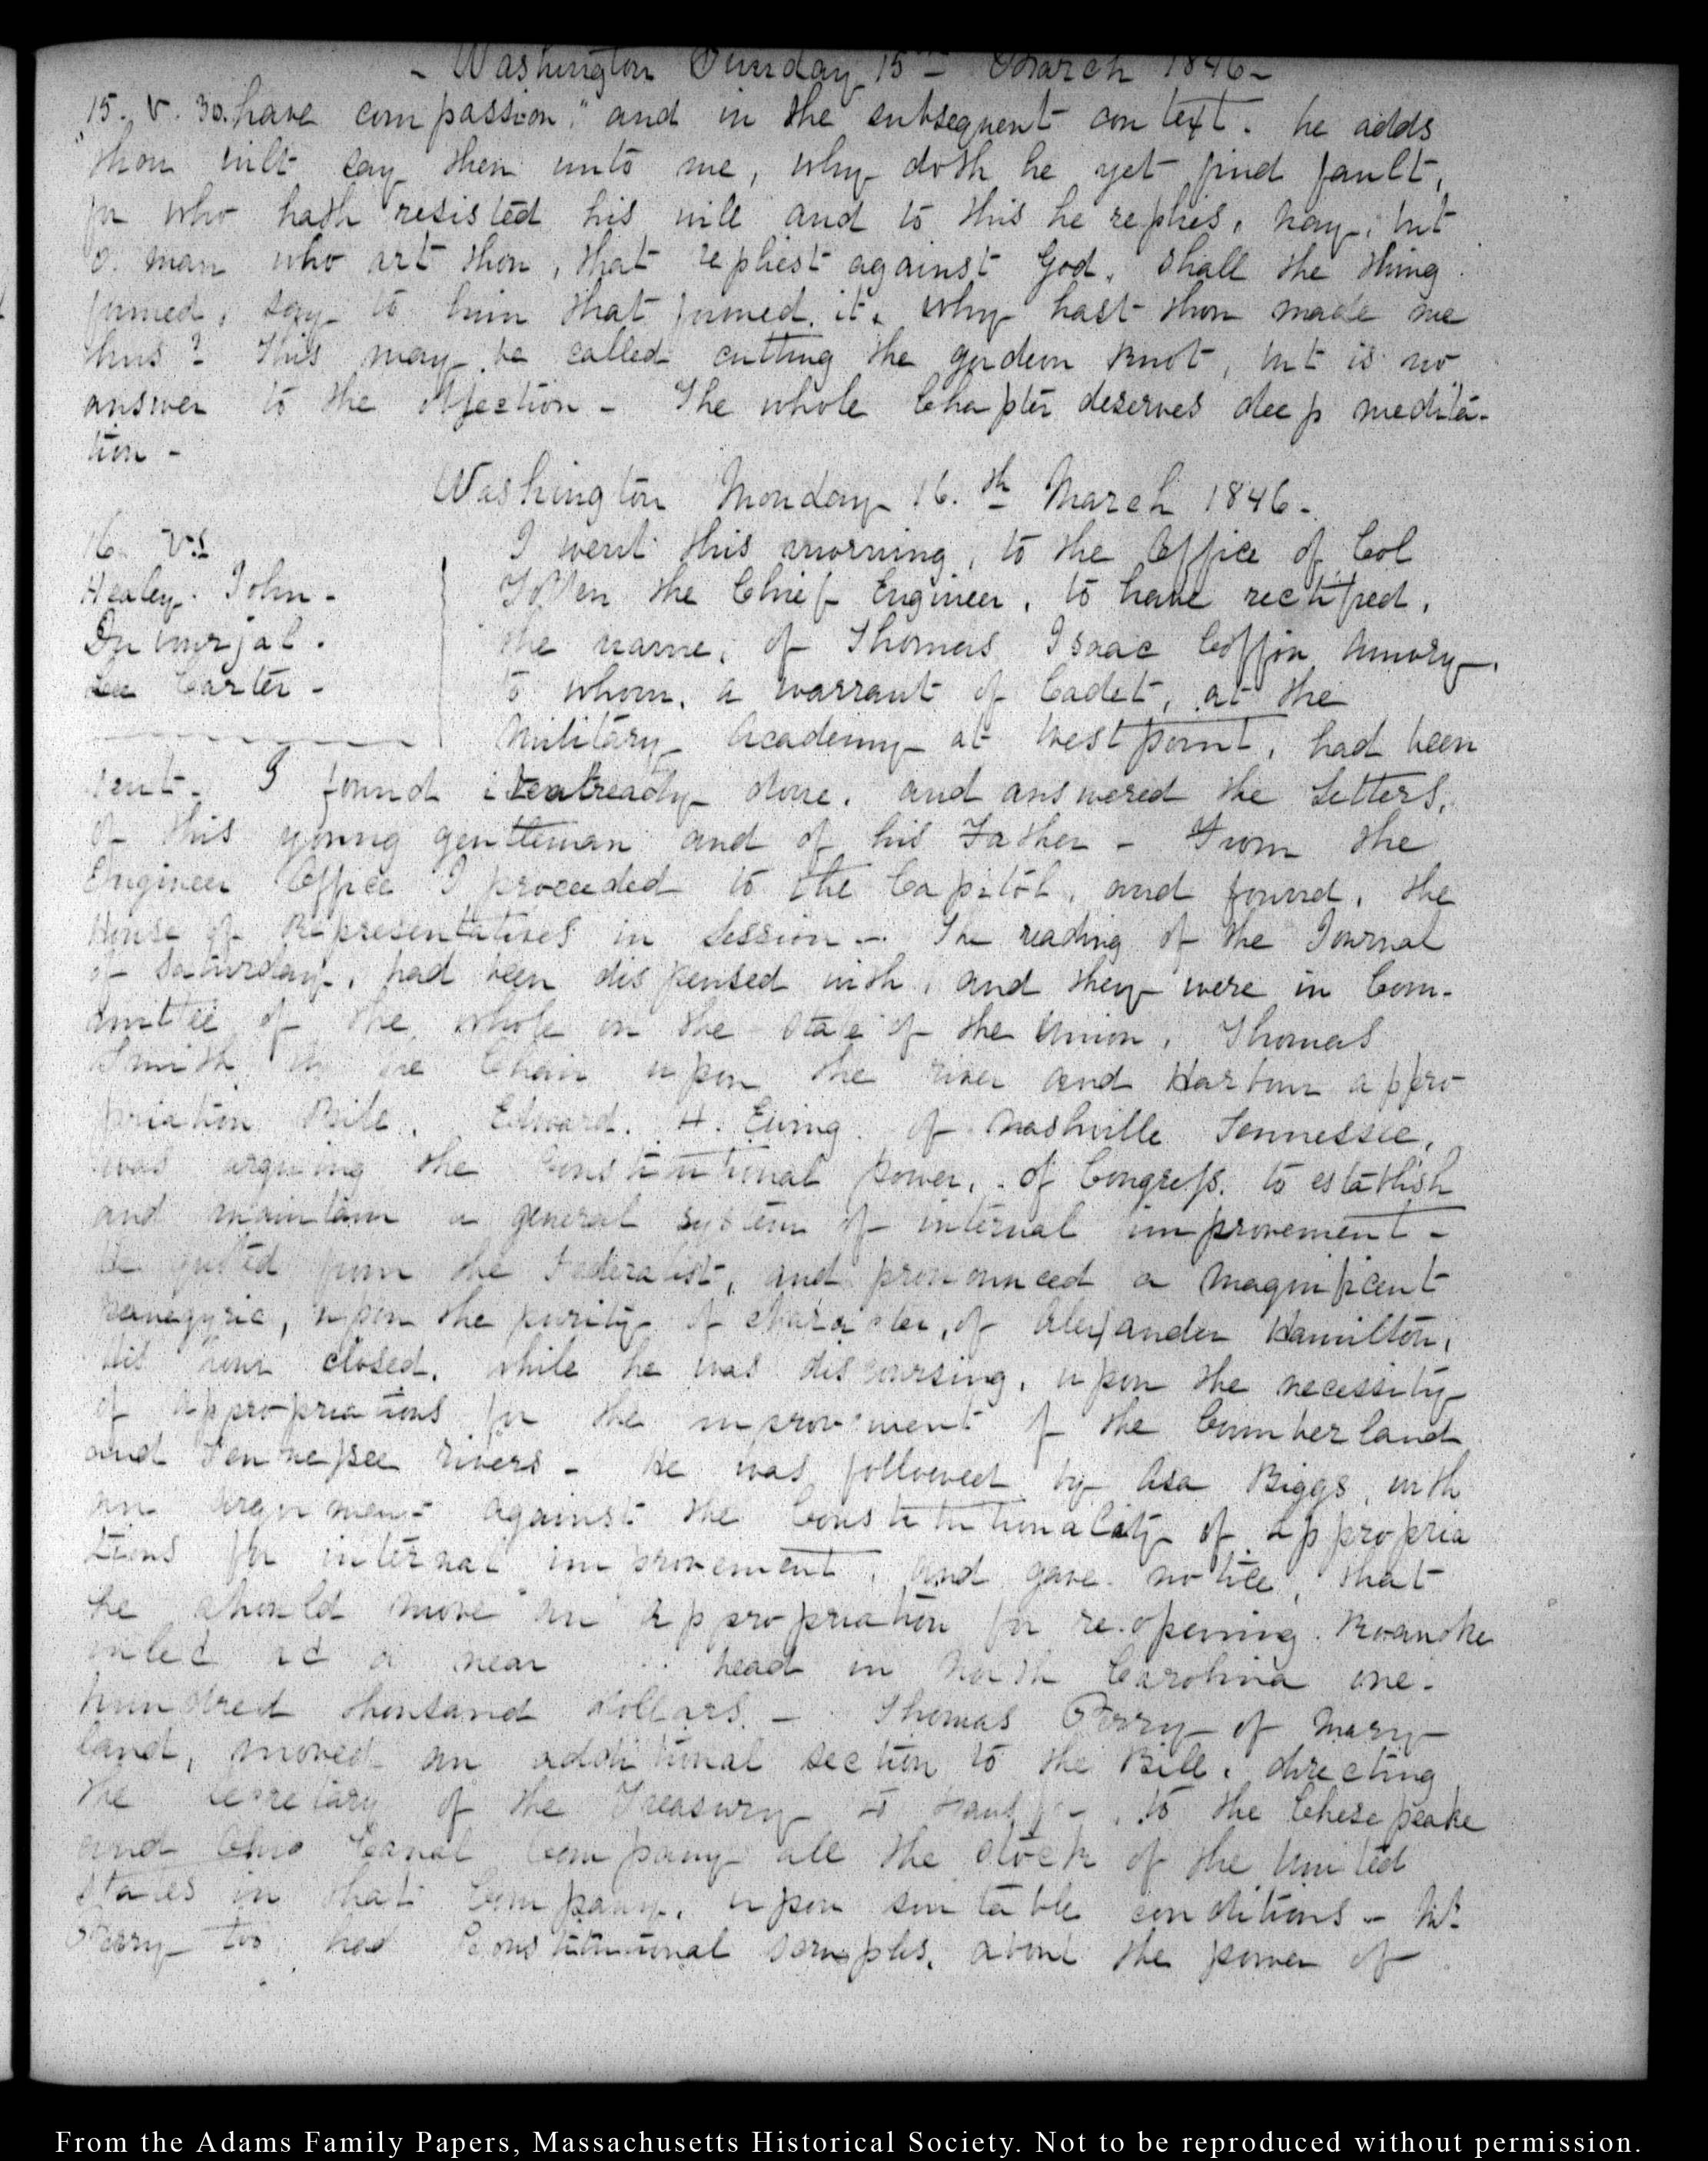 - Washington Sunday 15th March 1846-
15. V. 30. have compassion," and in the subsequent context. he adds
"thou wilt say then unto me, why doth he yet find fault,
for who hath resisted his will and to this he replies, nay, but
o. man who art thou, that repliest against God. shall the thing
formed, say to him that formed it. why hast thou made me
thus? This may be called cutting the gordeon knot, but is no
answer to the objection - The whole Chapter deserves deep medita-
tion -
Washington Monday 16.th March 1846-
16. V.
Healey. John -
Carter -
I went this morning, to the Office of Col
Totten the Chief Engineer, to have rectified,
the name, of Thomas Isaac Coffin Amory,
to whom, a warrant of Cadet, at the
Military Academy at West point, had been
sent. I found already done. and answered the Letters,
of this young gentleman and of his Father - From the
Engineer Office I proceeded to the Capitol, and found, the
House of Representatives in Session - The reading of the Journal
of Saturday, had been dispensed with, and they were in Com-
mittee of the whole on the state of the Union, Thomas
Smith in the Chair upon the river and Harbour appro
priation Bill. Edward. H. Ewing. of Nashville Tennessee,
was arguing the Constitutional power, of Congress. to establish
and maintain a general system of internal improvement -
He quoted from the Federalist, and pronounced a magnificent
panegyric, upon the purity of character, of Alexander Hamilton,
His hour closed, while he was discoursing, upon the necessity
of appropriations for the improvement of the Cumberland
and Tennessee rivers - He was followed by Asa Biggs, with
an argument against the Constitutionality of appropria
tions for internal improvement, and gave notice, that
he should move an appropriation for re-opening. Roanoke
inlet at or near head in North Carolina one-
hundred thousand dollars - Thomas Perry of Mary-
land, moved an additional section to the Bill. directing
the Secretary of the Treasury to transfer, to the Chesepeake
and Ohio Canal Company all the stock of the United
States in that Company, upon suitable conditions - Mr.
Perry too, had Constitutional scruples, about the power of
From the Adams Family Papers, Massachusetts Historical Society. Not to be reproduced without permission.